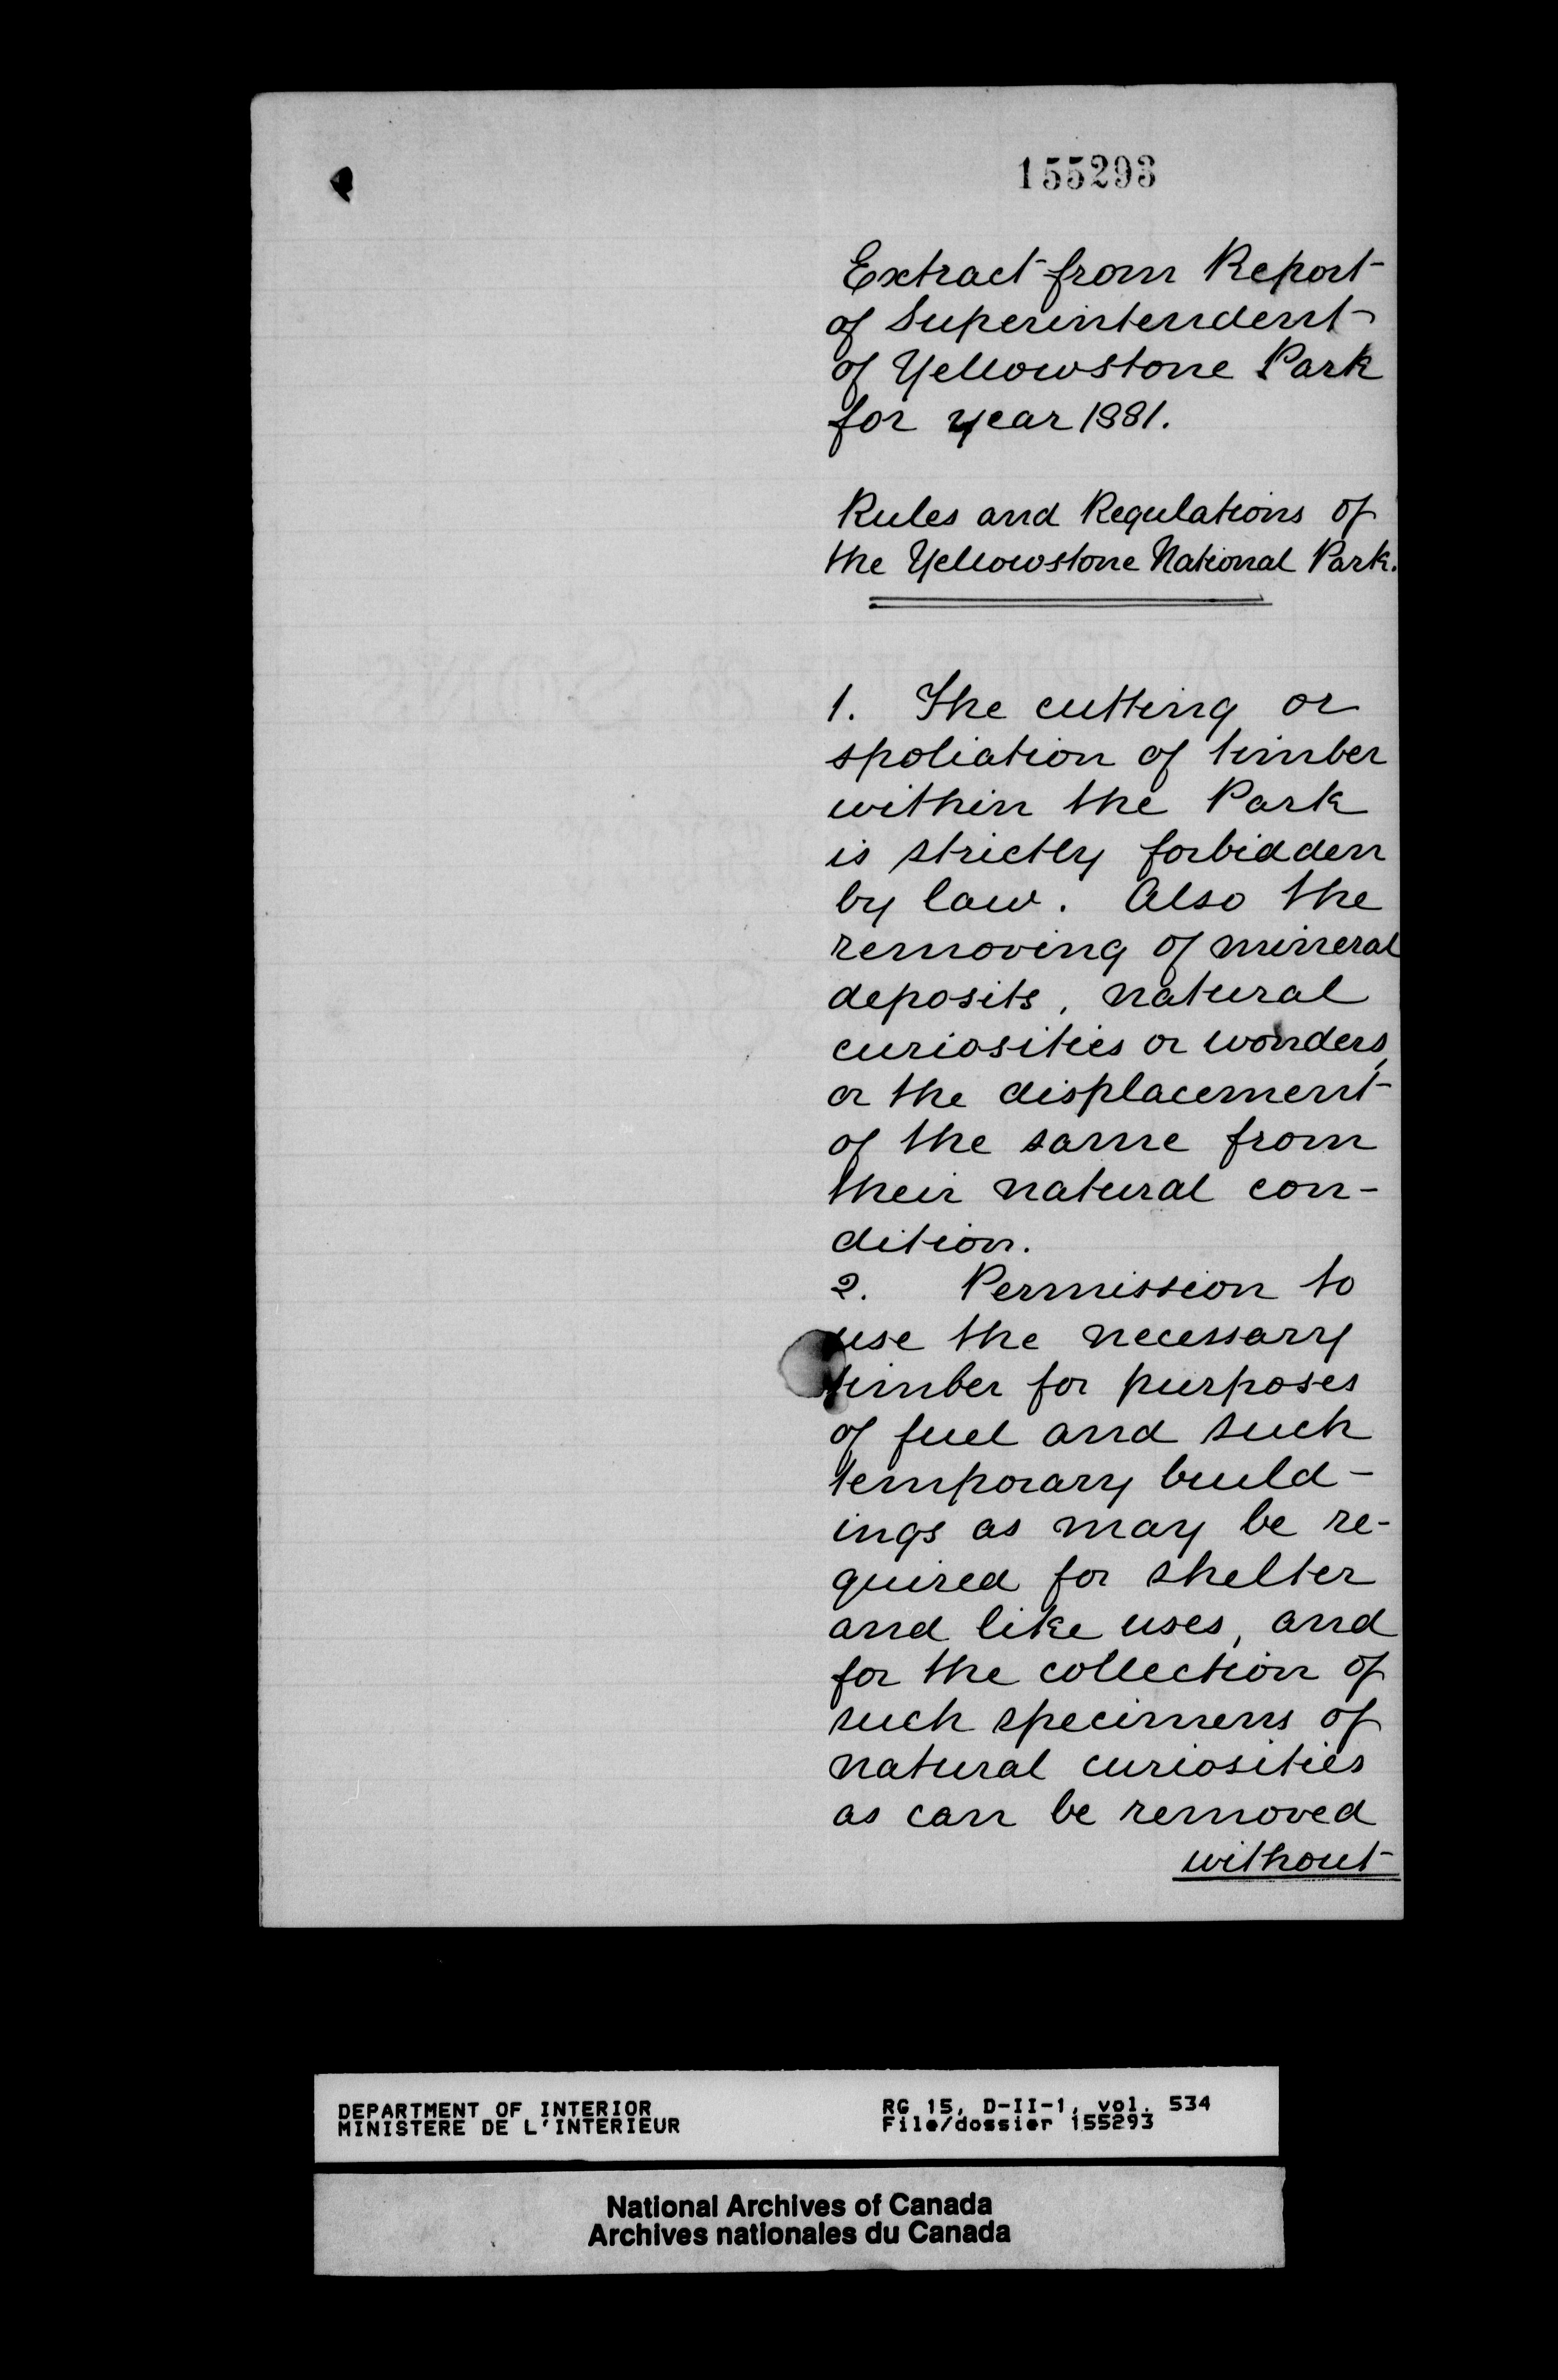 155293
Extract from Report
of Superintendent
of Yellowstone Park
for year 1881.
Rules and Regulations of
the Yellowstone National Park.
1. The cutting or
spoliation of timber
within the Park
is strictly forbidden
by law. Also the
removing of mineral
deposits, natural
curiosities or wonders,
or the displacement
of the same from
their natural con-
dition.
2. Permission to
use the necessary
timber for purposes
of fuel and such
temporary build-
ings as may be re-
quired for shelter
and like uses, and
for the collection of
such specimens of
natural curiosities
as can be removed
without
DEPARTMENT OF INTERIOR RG 15, D-II-1, vol. 534
MINISTERE DE L'INTERIEUR File/dossier 155293
National Archives of Canada
Archives nationales du Canada